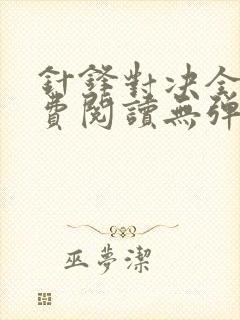 針鋒對决全
費閱讀無彈
巫夢潔